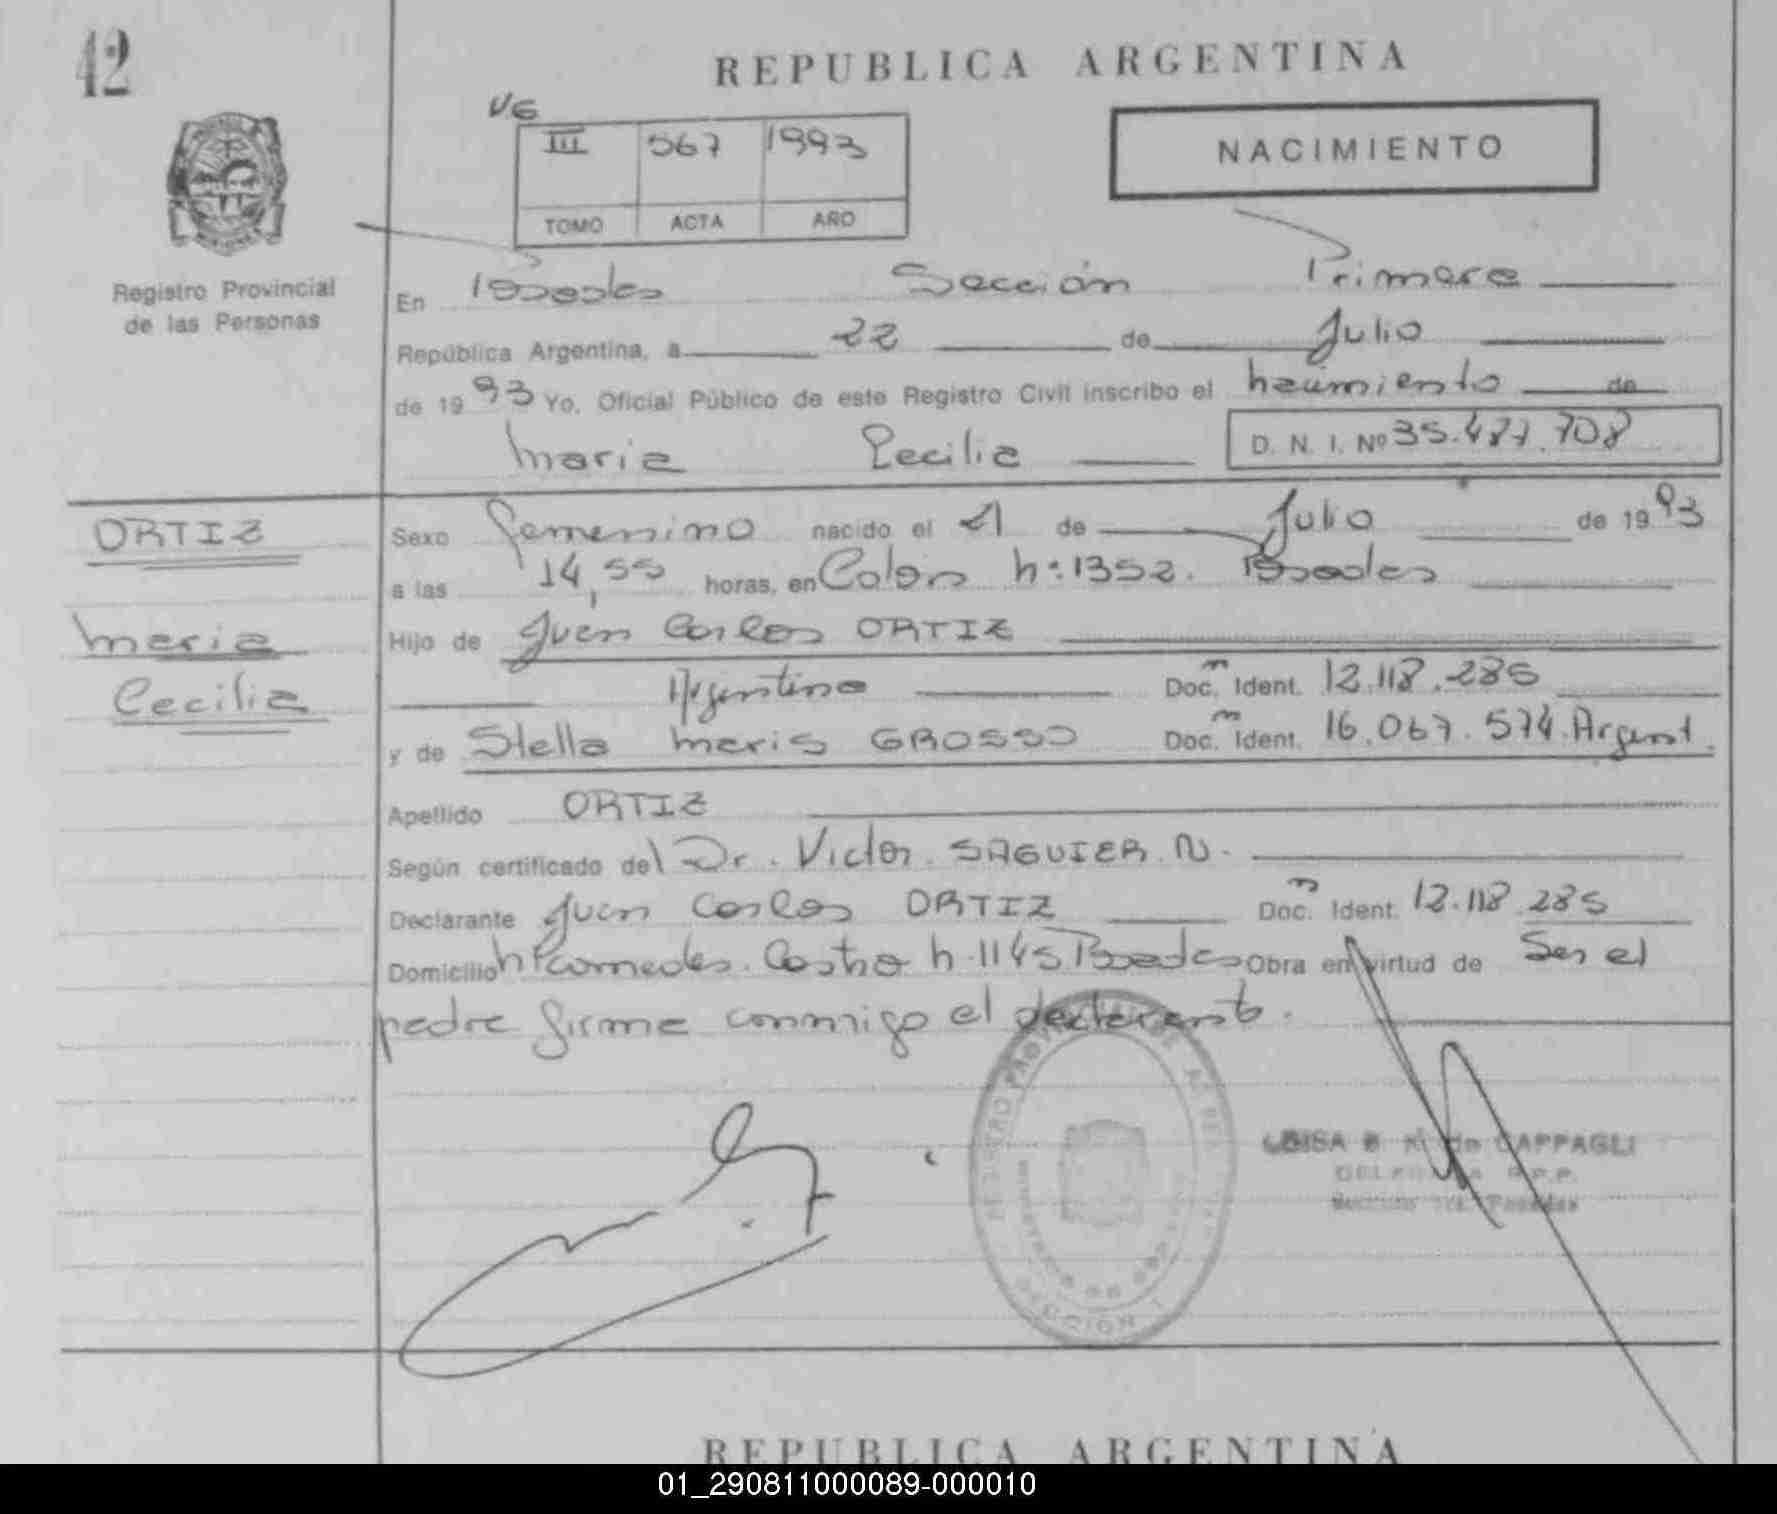 42
REPUBLICA ARGENTINA
III 567 1993
TOMO ACTA AÑO
NACIMIENTO
Registro Provincial
de las Personas
En Posadas Sección Primera
República Argentina, a 22 de Julio
de 1993 Yo, Oficial Público de este Registro Civil inscribo el nacimiento de
Maria Cecilia D. N. I. Nº 35.487.708
ORTIZ
Maria
Cecilia
Sexo femenino nacido el 21 de Julio de 1993
a las 14,55 horas, en Colon nº 1352. Posadas
Hijo de Juan Carlos ORTIZ
Argentino Doc. Ident. 12.118.285
y de Stella Maris GROSSO Doc. Ident. 16.067.574. Argent.
Apellido ORTIZ
Según certificado del Dr. Victor SAGUIER. N.
Declarante Juan Carlos ORTIZ Doc. Ident. 12.118.285
Domicilio Castro 1145 Posadas Obra en virtud de Ser el
padre firma conmigo el declarante.
de CAPPAGLI
R.P.P.
Posadas
SECCION 1
REPUBLICA ARGENTINA
01_290811000089-000010